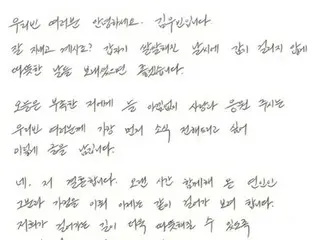 우리빈 여러분 안녕하세요. 김우빈입니다.
잘 지내고 계시죠? 갑자기 쌀쌀해진 날씨에 감기 걸리지 않게
따뜻한 날들 보내셨으면 좋겠습니다.
오늘은 부족한 저에게 늘 아낌없이 사랑과 응원 주시는
우리빈 여러분께 가장 먼저 소식 전해드리고 싶어
이렇게 글을 남깁니다.
네. 저 결혼합니다. 오랜 시간 함께해 온 연인인
그분과 가정을 이뤄 이제는 같이 걸어가 보려 합니다.
저희가 걸어가는 길이 더욱 따뜻해질 수 있도록